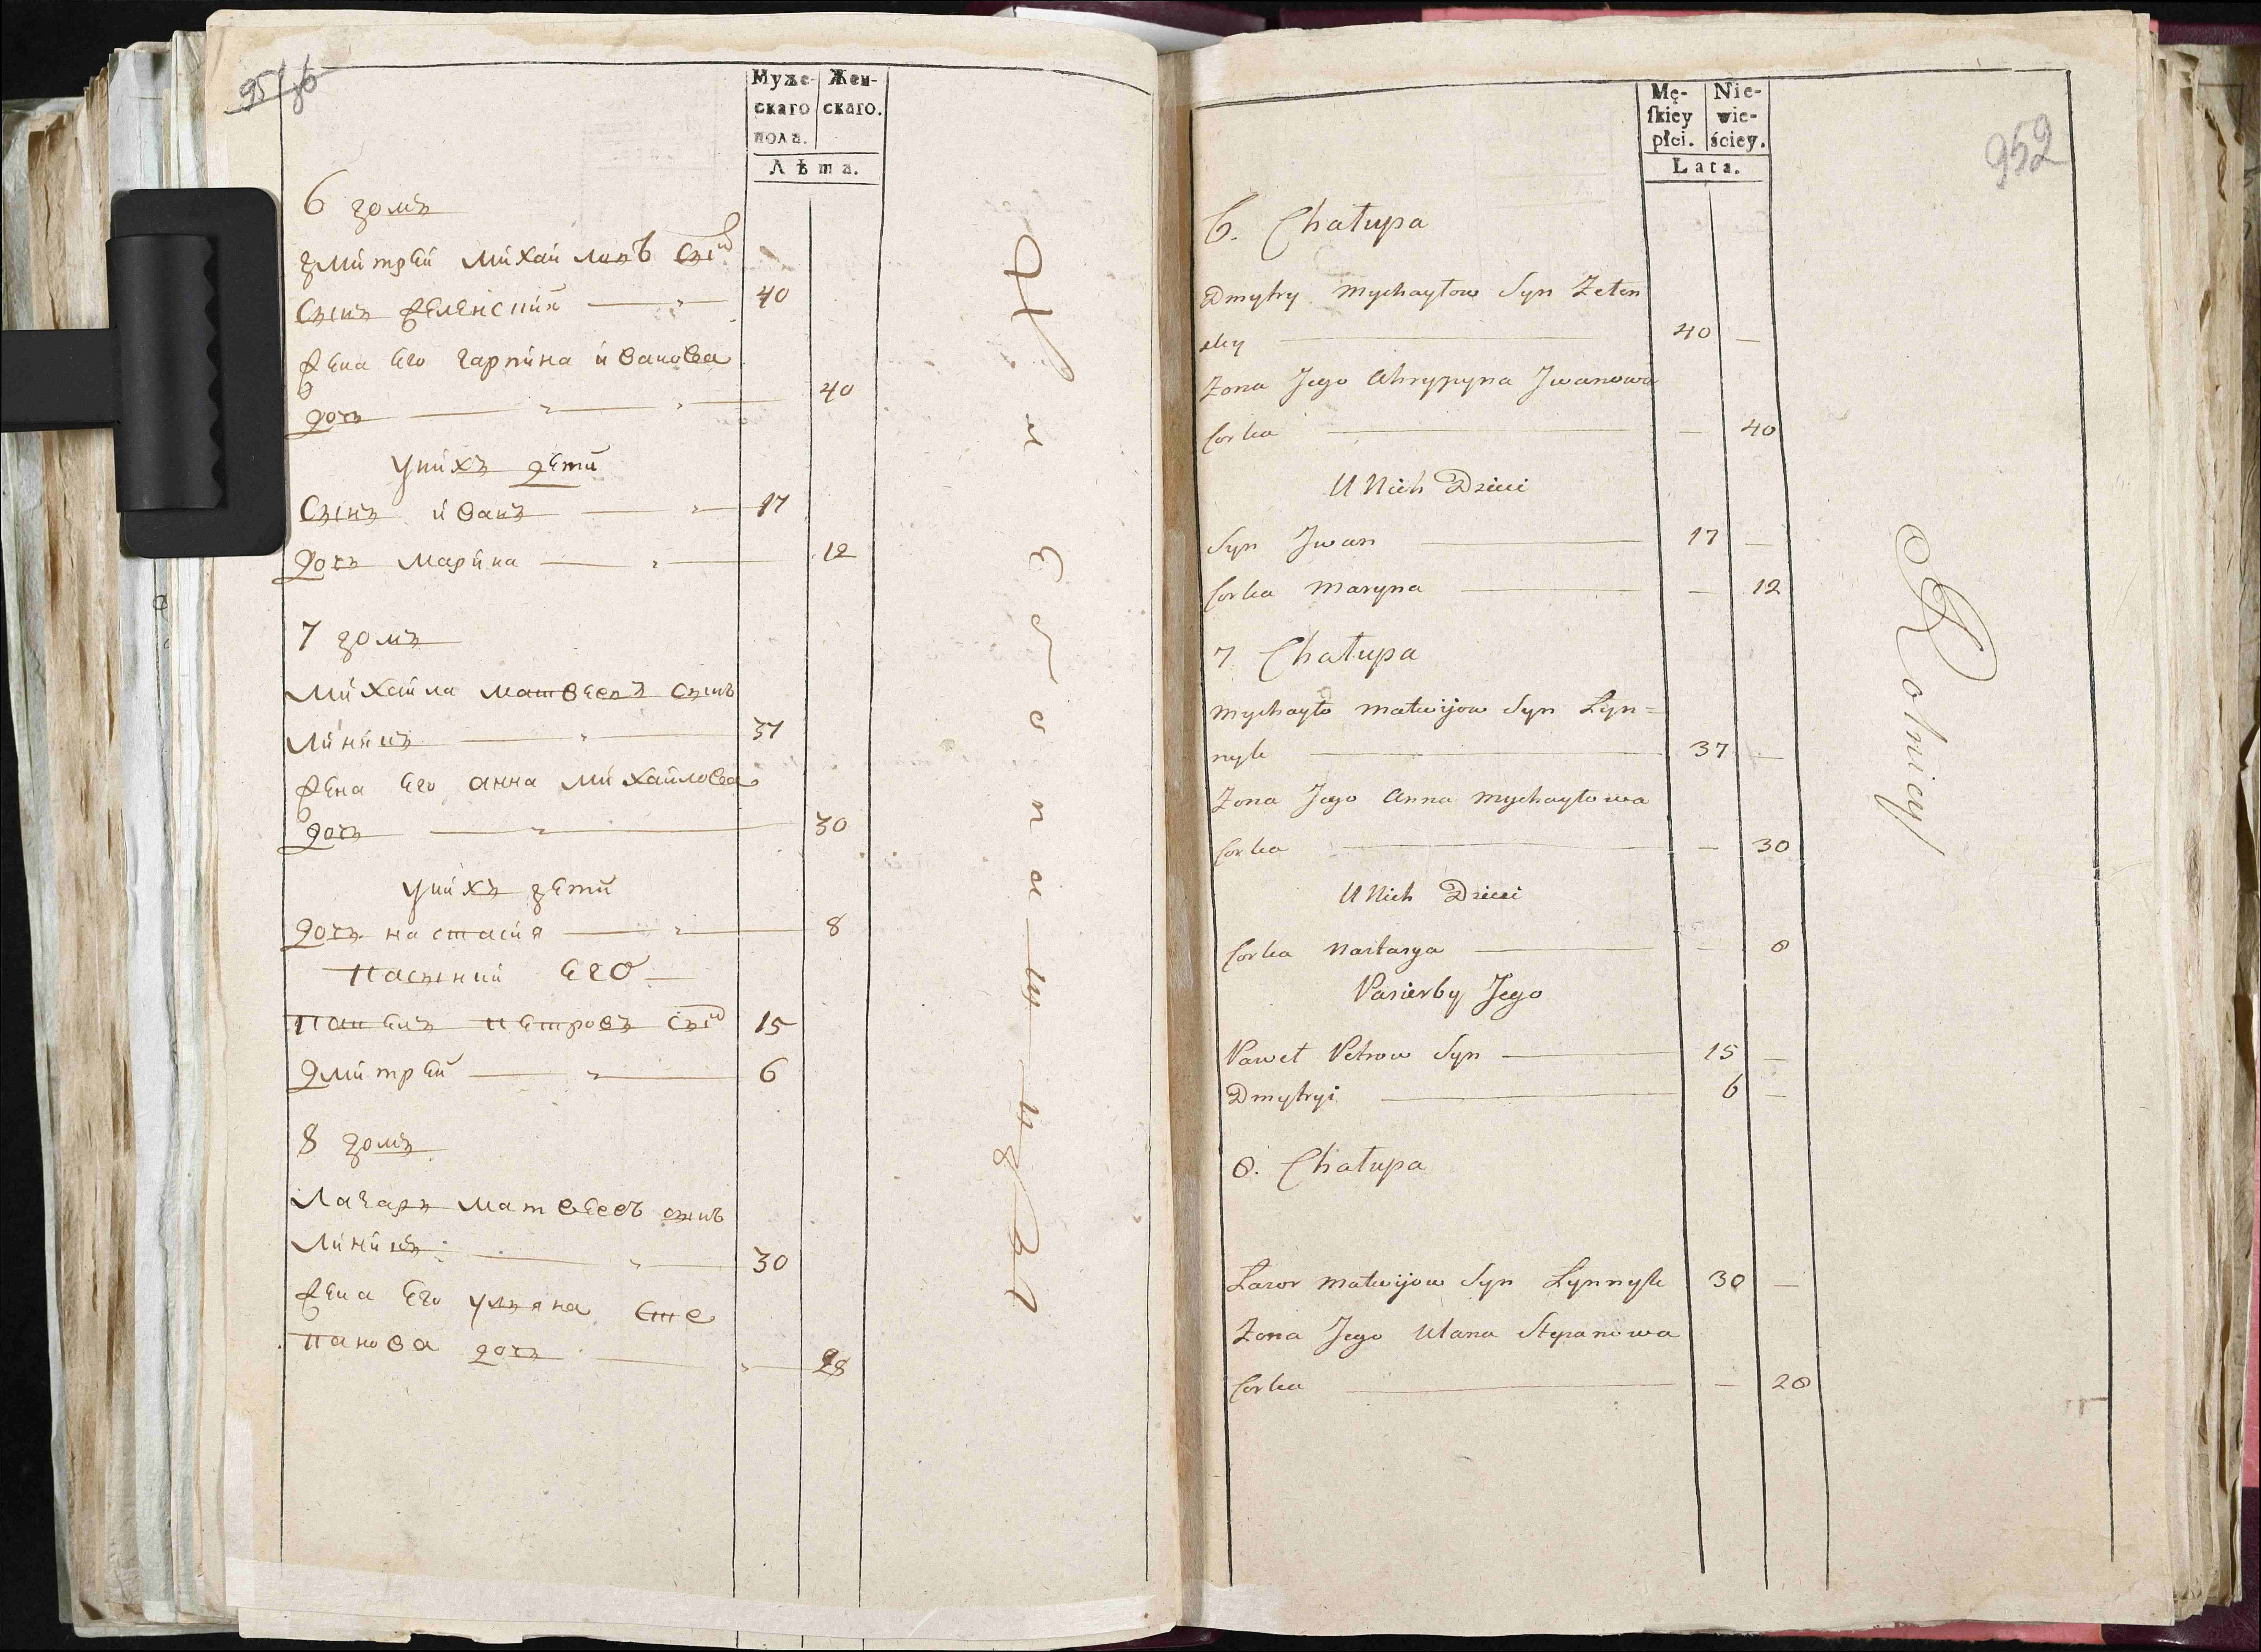 951об
Муже-
скаго
пола.
Жен-
скаго.
Лѣта.
6 домъ
Дмитрей Михайловъ сынъ
сынъ Желенский 40
Жена его Гарпина Иванова
дочь 40
У нихъ дети
Сынъ Иванъ 17
Дочь Марина 12
7 домъ
Михайла Матвеевъ сынъ
Линникъ 37
Жена его Анна Михайлова
дочь 30
У нихъ дети
Дочь Настасия 8
Пасынки его
Павелъ Петровъ сынъ 15
Дмитрей 6
8 домъ
Лазарь Матвеевъ сынъ
Линикъ 30
Жена его Ульяна Сте
панова дочь 28
952
Mę-
skiey
płci.
Nie-
wie-
ściey.
Lata.
6. Chałupa
Dmytry Mychayłow Syn Zelen
sky 40 —
Zona Jego Ahrypyna Jwanowa
Corka — 40
U Nich Dzieci
Syn Jwan 17 —
Corka Maryna — 12
7 Chałupa
Mychayło Matwijow Syn Lyn=
nyk 37 —
Zona Jego Anna Mychayłowa
Corka — 30
U Nich Dzieci
Corka Nastasya — 8
Pasierby Jego
Paweł Petrow Syn 15 —
Dmytryi 6 —
8. Chałupa
Lazor Matwijow Syn Lynnyk 30 —
Zona Jego Ulana Stepanowa
Corka — 28
Rolnicy